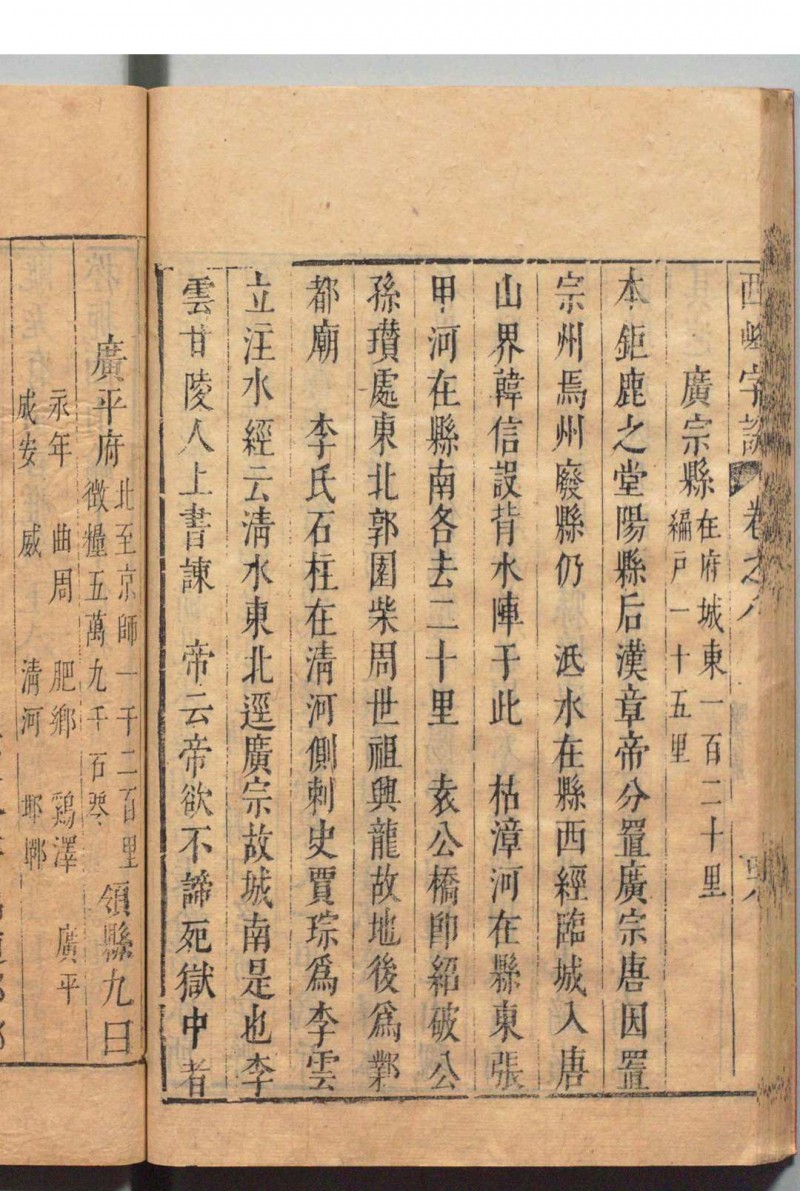 西峰字說 卷之八
廣宗縣 在府城東一百二十里
編戶一十五里
本鉅鹿之堂陽縣后漢章帝分置廣宗唐因置
宗州焉州廢縣仍 泜水在縣西經臨城入唐
山界韓信設背水陣于此 枯漳河在縣東張
甲河在縣南各去二十里 袁公橋卽紹破公
孫瓚處東北郭園柴周世祖興龍故地後爲鄴
都廟 李氏石柱在淸河側刺史賈琮爲李雲
立注水經云淸水東北逕廣宗故城南是也李
雲甘陵人上書諫 帝云帝欲不諦死獄中者
廣平府 北至京師一千二百里
徵糧五萬九千石零 領縣九曰
永年 曲周 肥鄉 鷄澤 廣平
成安 威 淸河 邯鄲